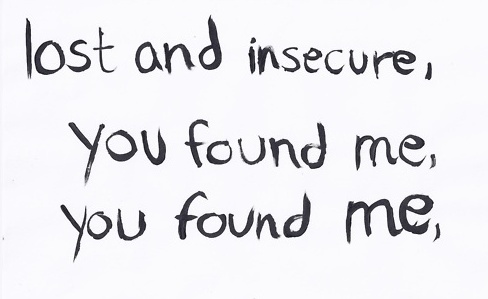 lost and insecure,
you found me,
you found me,